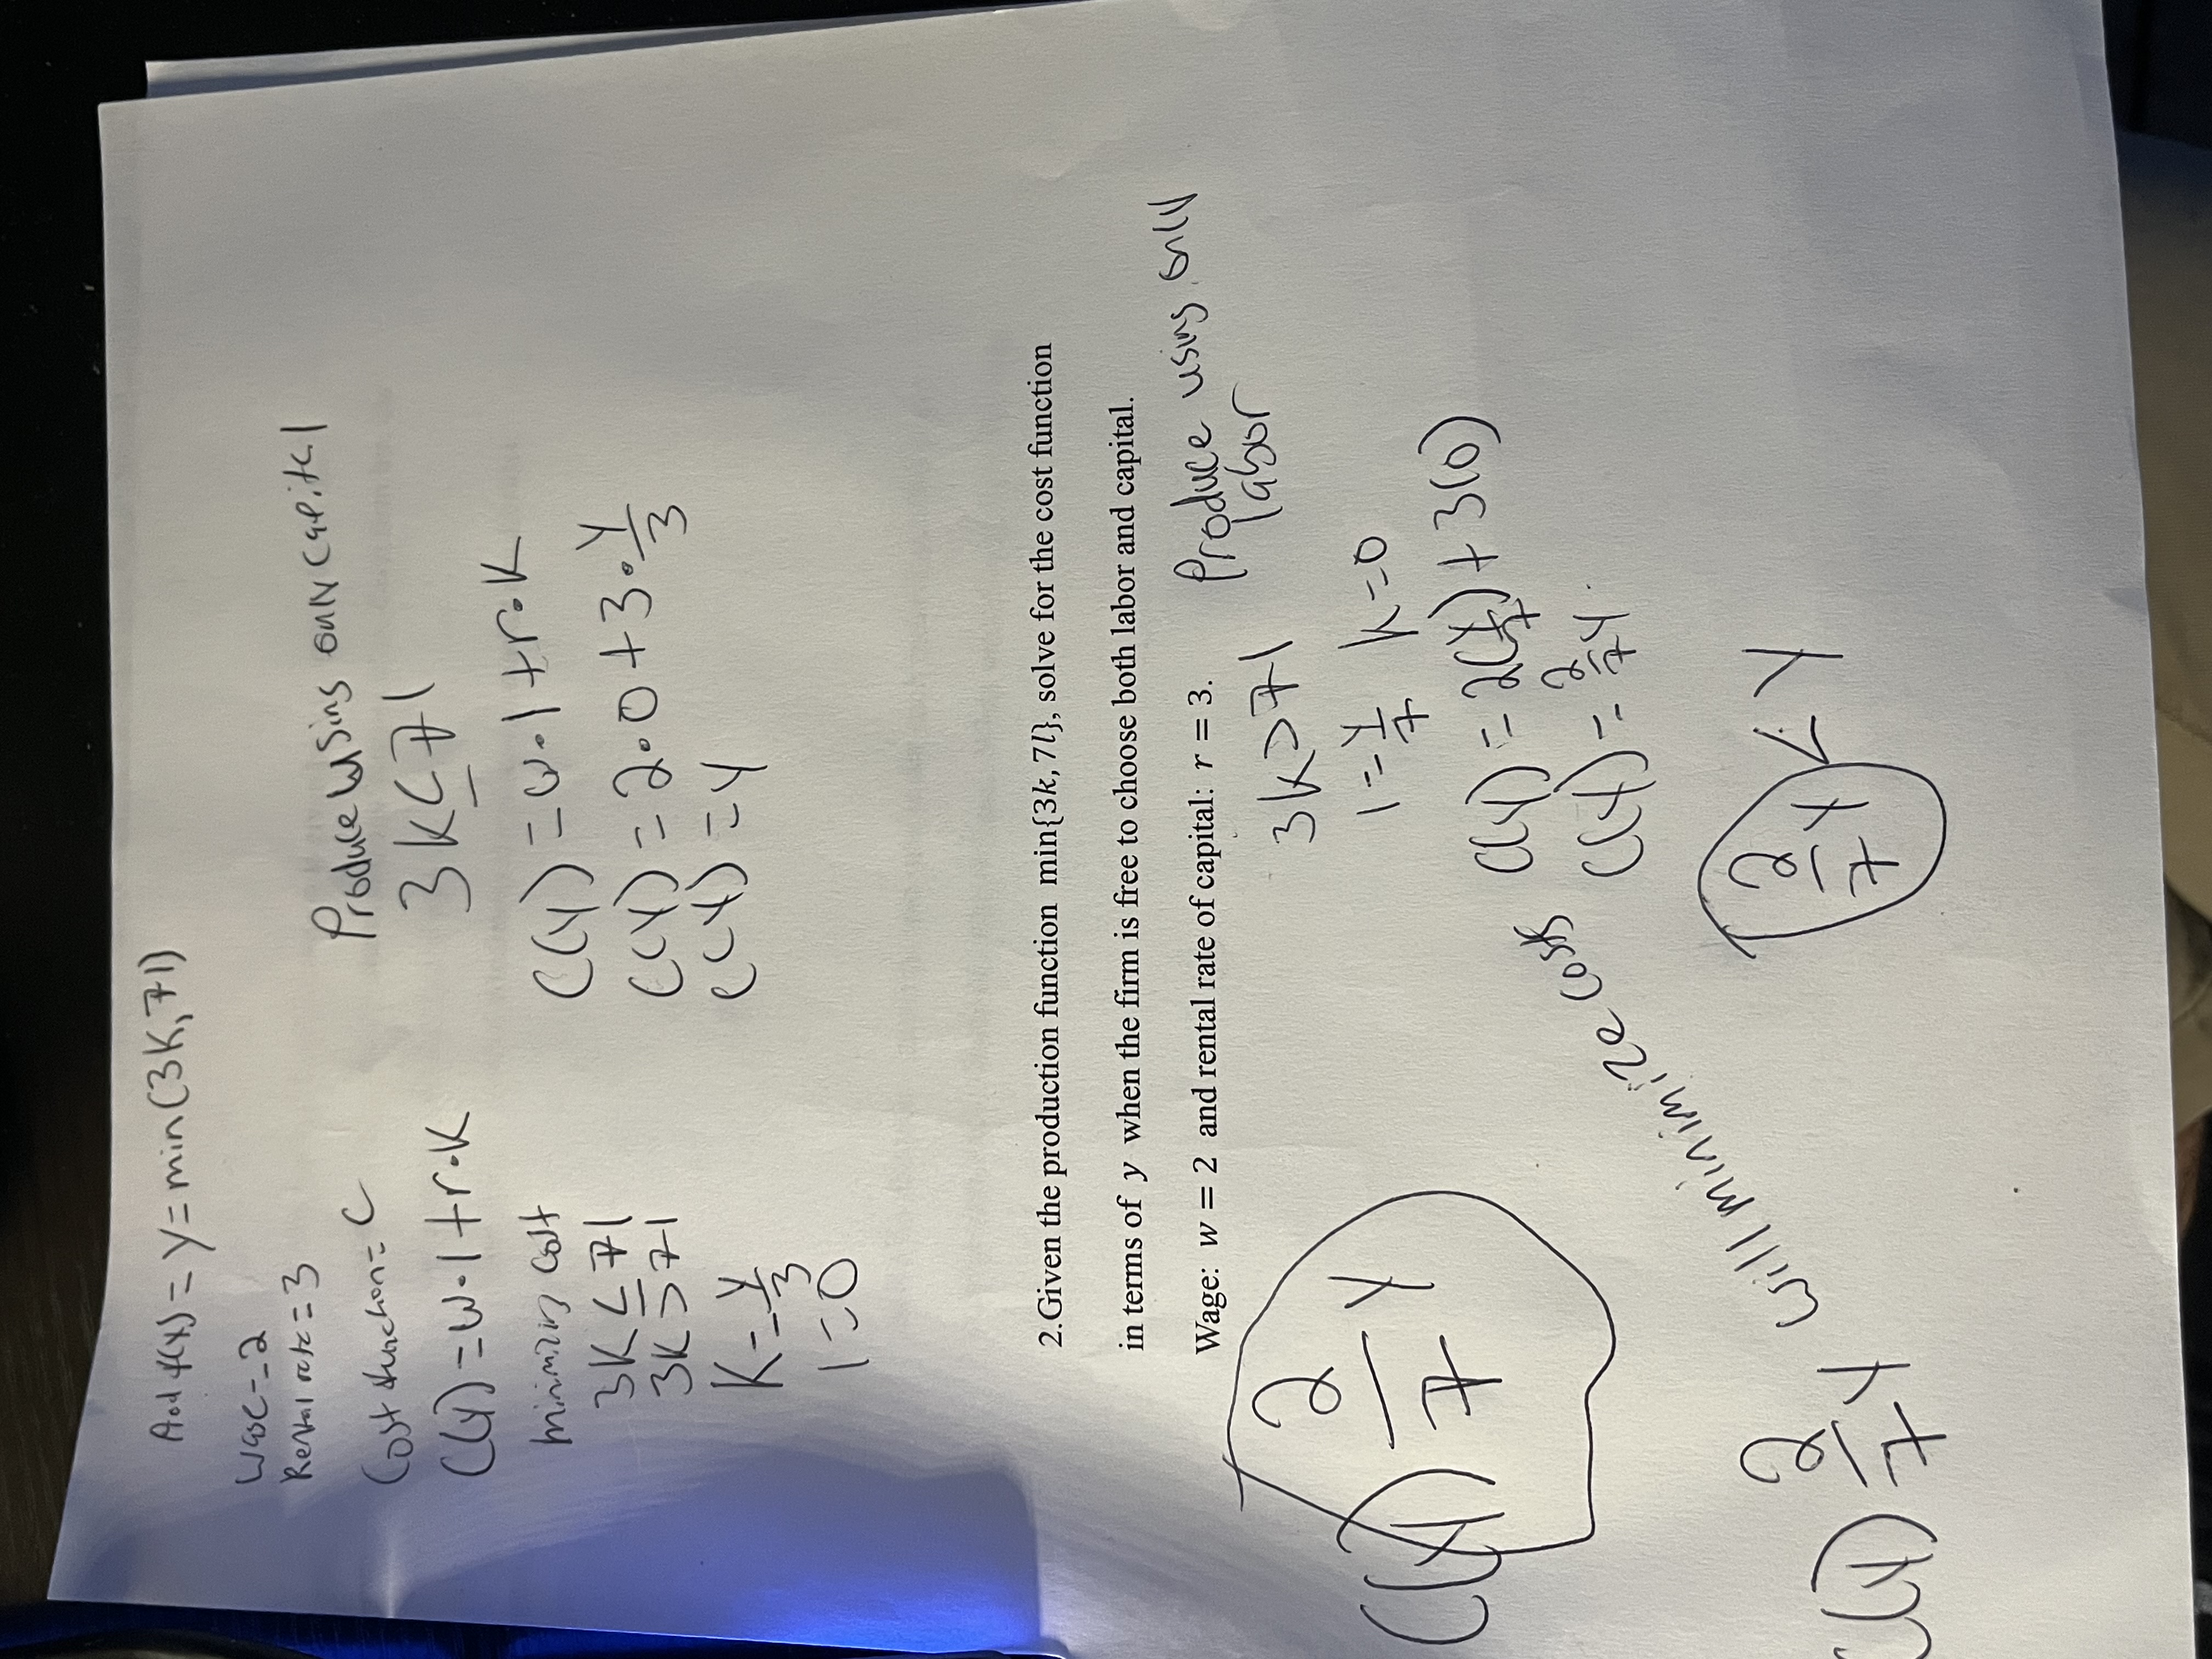 And f(x) = y = min(3K, 7l)
Wage = 2
Rental rate = 3
Cost function = C
C(y) = w·l + r·K
minimizing cost
3K ≤ 7l
3K > 7l
K = y/3
l = 0
Produce using only capital
3K ≤ 7l
C(y) = w·l + r·K
C(y) = 2·0 + 3·y/3
C(y) = y
2.Given the production function min{3k, 7l}, solve for the cost function
in terms of y when the firm is free to choose both labor and capital.
Wage: w = 2 and rental rate of capital: r = 3.
Produce using only
labor
3K > 7l
l = y/7 K = 0
C(y) = 2(y/7) + 3(0)
C(y) = 2/7 y.
2/7 y < y
C(y) 2/7 y
C(y) 2/7 y will minimize cost